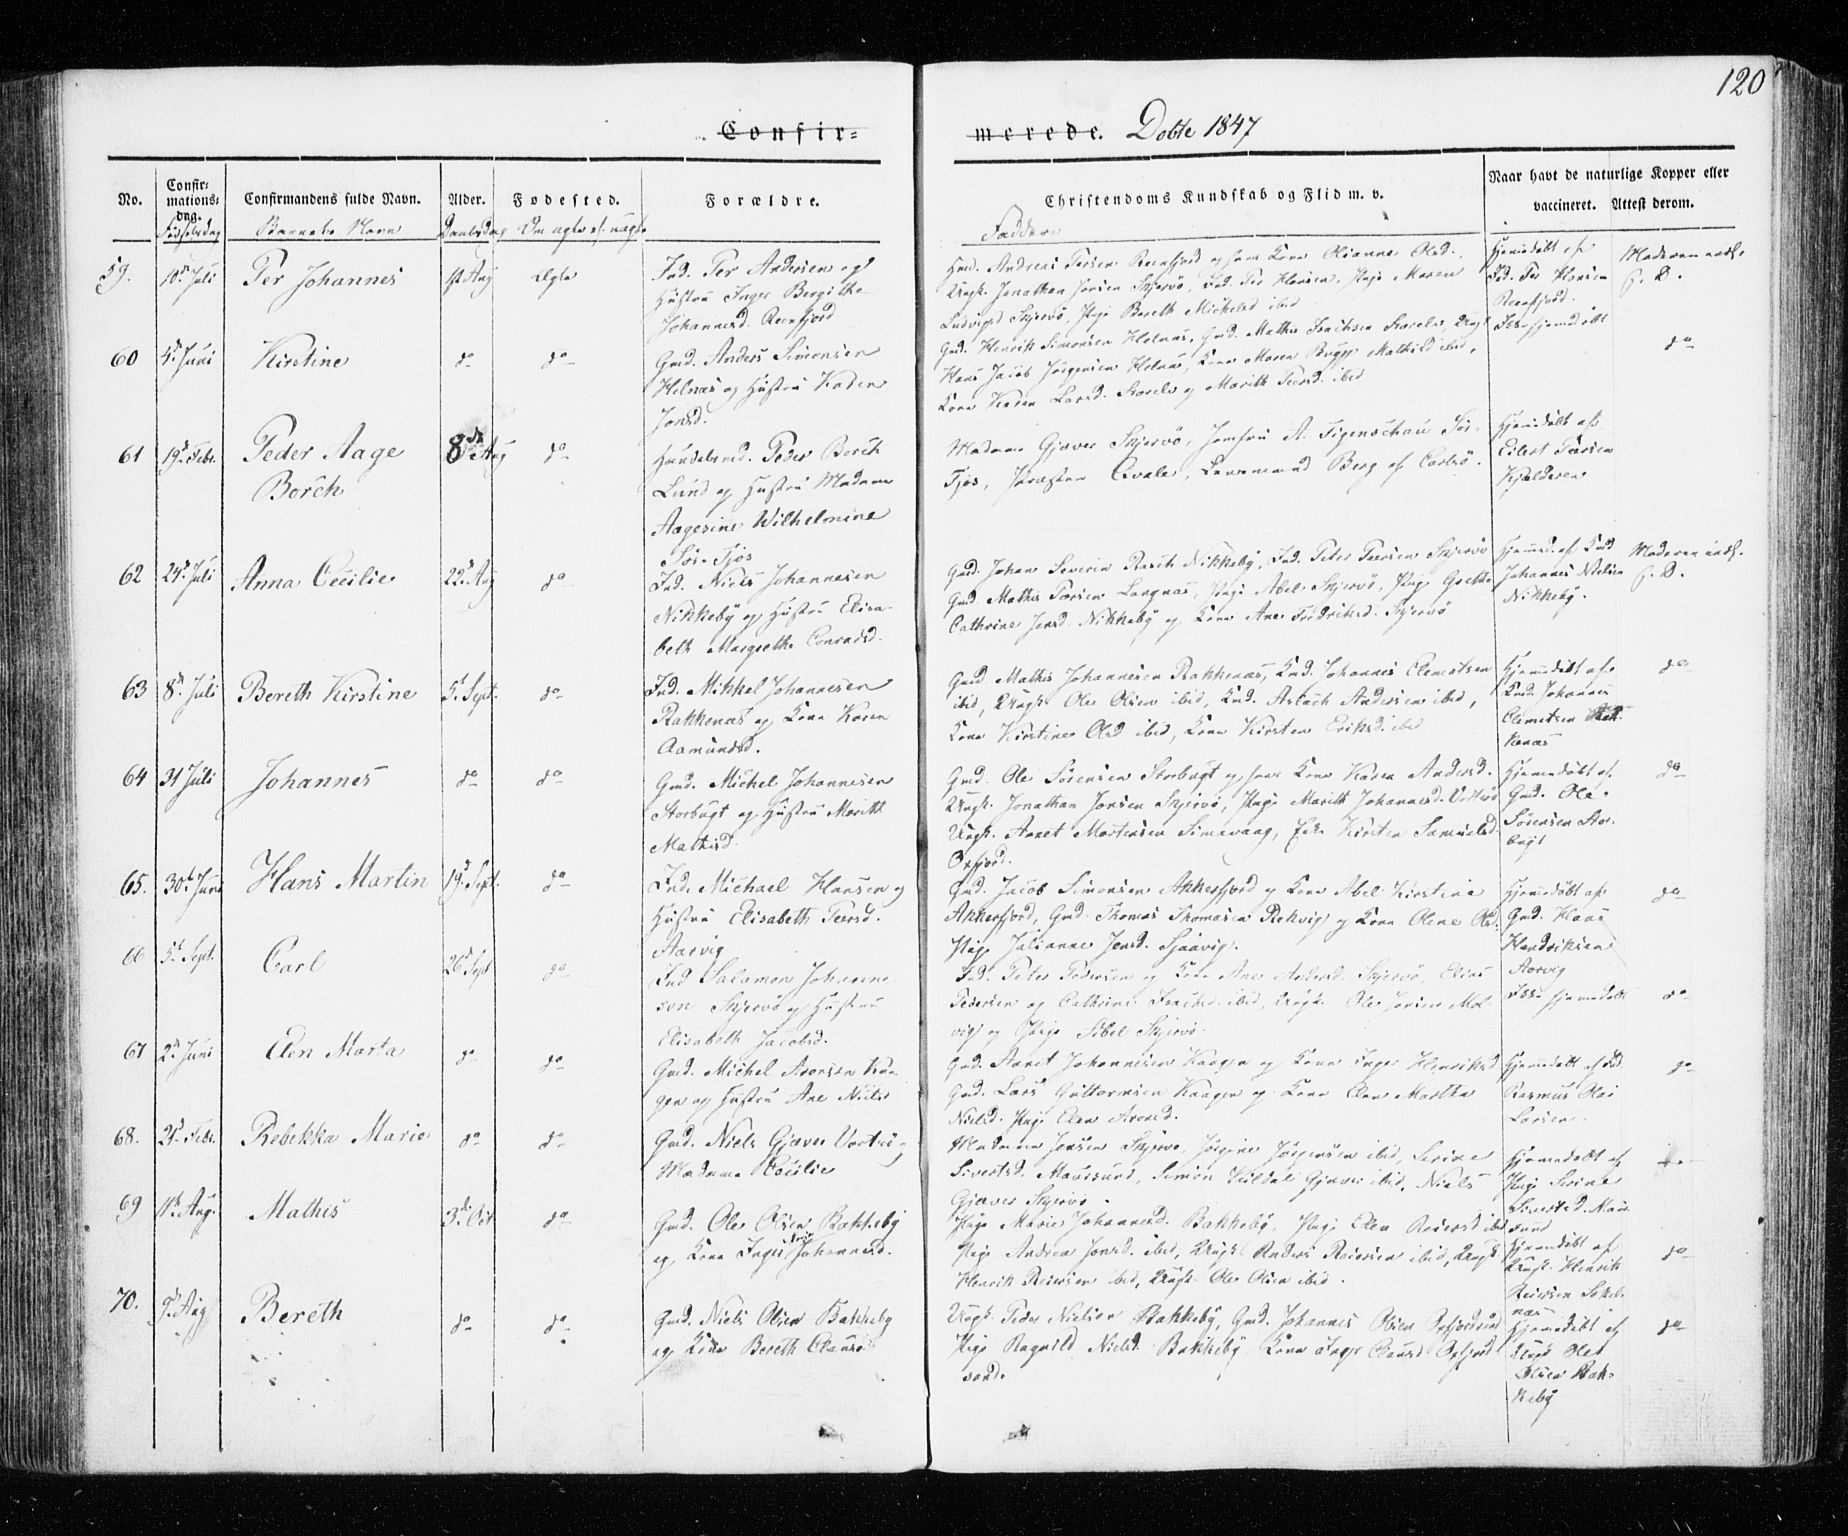 120
Confirmerede. Døbte 1847
No.
Confirmationsdag. Fødselsdag
Confirmandens fulde Navn. Barnets Navn
Alder. Daabsdag
Fødested. Om ægte el. uægte
Forældre.
Christendoms Kundskab og Flid m. v. Faddere
Naar havt de naturlige Kopper eller
vaccineret. Attest derom.
59. 10de Juli Per Johannes 1st Aug Ægte
Ind. Per Andersen og
Hustru Inger Bergithe
Johannesd. Reenfjord
Gmd. Andreas Persen Reenfjord og hans Kone Olianne Olsd.
Ungk. Jonathan Jonsen Skjervö, Ind. Per Hansen, Pige Maren
Ludvigsd Skjervö, Pige Bereth Mickelsd ibid
Hjemdøbt af
Ind. Per Hansen
Reenfjord.
Moderen indl.
60 5te Juni Kirstine do do
Gmd. Anders Simonsen
Helnæs og Hustru Karen
Jonsd.
Gmd. Henrik Simonsen Helnæs, Gmd. Mathis Isachsen
Hans Jacob Jörgensen Helnæs, Kone Maren
Kone Karen Larsd. og Marith Peersd. ibid
Ikke hjemdøbt
do
61 19de Febr. Peder Aage
Borch
8de Aug do
Handelsmd. Peder Borch
Lund og Hustru Madame
Aagesine Wilhelmine
Madame Gjæver Skjervö, Jomfru A. Figenschau
Qvale, Lensmand Berg af Carlsö.
Hjemdøbt af
Eilert Peersen
Kjelderen
62 24de Juli Anna Cecilie 22de Aug do
Ind. Niels Johannesen
Nikkeby og Hustru Elisabeth
Margrethe Conradsd.
Gmd. Johan Severin Rasch Nikkeby, Ind. Peter Peersen Skjervö
Gmd. Mathis Larsen Langnæs, Pige Abel Skjervö, Pige Grethe
Cathrine Jensd. Nikkeby og Kone Ane Fredriksd. Skjervö
Hjemd. af Gmd
Johannes Nielsen
Nikkeby.
Moderen indl.
63 8de Juli Bereth Kirstine 5te Sept. do
Ind. Mikkel Johannesen
Rakkenæs og Kone Karen
Aamundsd.
Gmd. Mathis Johannesen Rakkenæs, Gmd. Johannes Clemetsen
ibid, Ungk. Ole Olsen ibid, Gmd. Aslach Andersen ibid,
Kone Kirstine Olsd ibid, Kone Kirsten Eriksd. ibid
Hjemdøbt af
Gmd. Johannes
Clemetsen Rak-
kenæs
do
64 31 Juli Johannes do do
Gmd. Michel Johannesen
Storbugt og Hustru Marith
Mathisd.
Gmd. Ole Sörensen Storbugt og hans Kone Karen Andersd.
Ungk. Jonathan Jonsen Skjervö, Pige Marith Johannesd. Vorterö
Ungk. Anret Mortensen Simavaag, Enke Kirsten Samuelsd.
Oxfjord.
Hjemdøbt af
Gmd. Ole
Sörensen Stor-
bugt
do
65. 30te Juni Hans Martin 19de Sept. do
Ind. Michael Hansen og
Hustru Elisabeth Peersd.
Aarvig
Gmd. Jacob Simonsen Akkerfjord og Kone Abel Kirstine
Akkerfjord, Gmd. Thomas Thomasen Rekvig og Kone Olene Olsd.
Pige Julianne Jensd. Sjaavig.
Hjemdøbt af
Gmd. Klaus
Hendriksen
Aarvig
do
66 5te Sept. Carl 26de Sept do
Ind Salamon Johanne-
sen Skjervö og Hustru
Elisabeth Jacobsd.
Ind. Peter Pedersen og Kone Ane Andersd. Skjervö, Elias
Pedersen og Cathrine ibid, Ungk. Ole Jonsen
og Pige Sibel Skjervö.
Ikke hjemdøbt
do
67 2de Juni Elen Marta do do
Gmd. Michel Aronsen Kaa-
gen og Hustru Ane Nielsd
Gmd. Anret Johannesen Kaagen og Kone Inger Henriksd
Gmd. Lars Guttormsen Kaagen og Kone Elen Martha
Nielsd. Pige Elen Aronsd.
Hjemdøbt af Ind
Rasmus
Larsen
do
68. 21de Febr. Rebekka Marie do do
Gmd. Niels Gjæver Vorterö,
Madame Cecilie
Madame Jensen Skjervö, Jörgine Jörgensen ibid, Serine
Sivertsd. Maursund, Simon Kildal Gjæver ibid, Niels
Gjæver Skjervö.
Hjemdøbt af
Pige Serine
Sivertsd. Maur-
sund
69 11te Aug. Mathis 3de Oct do
Gmd. Ole Olsen Bakkeby
og Kone Inger Johannesd.
Pige Marie Johannesd. Bakkeby, Pige Elen Reiersd ibid
Pige Andrea Jonsd. ibid, Ungk Anders Reiersen ibid, Ungk
Henrik Reiersen ibid, Ungk. Ole Olsen ibid.
Hjemdøbt af
Ungk. Henrik
Reiersen
do
70. 9de Aug Bereth do do
Gmd. Niels Olsen Bakkeby
og Kone Bereth Clausd
Ungk. Peder Nielsen Bakkeby, Gmd. Johannes Olsen
Pige Ragnild Nielsd. Bakkeby, Kone Inger Clausd
Hjemdøbt af
Ungk Ole
Olsen Bak-
keby
do